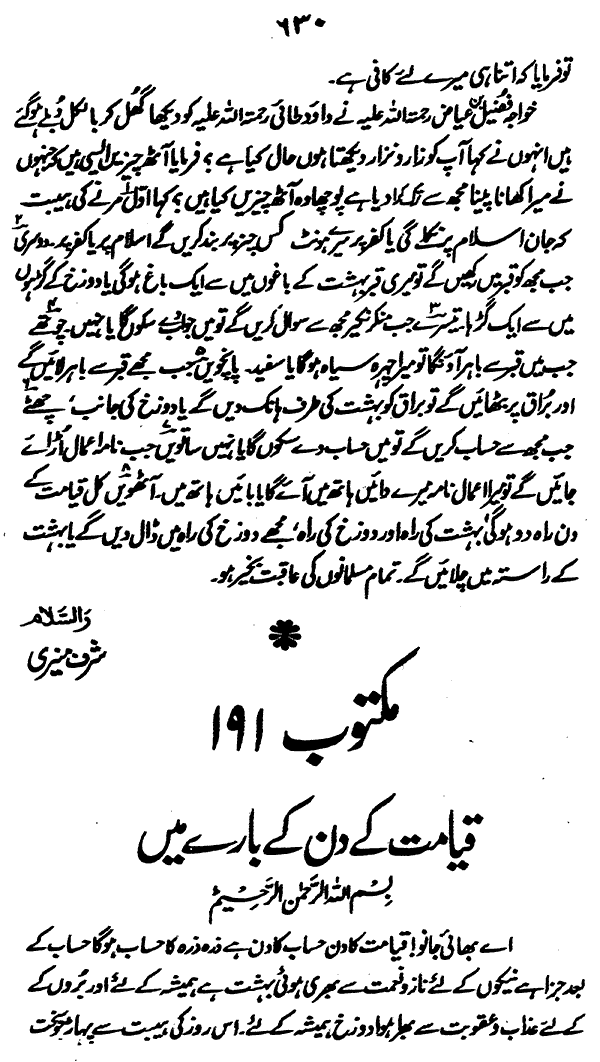 ۶۳۰
تو فرمایا کہ اتنا ہی میرے لئے کافی ہے۔
خواجہ فضیل بن عیاض رحمۃ اللہ علیہ نے داود طائی رحمۃ اللہ علیہ کو دیکھا گھل کر بالکل دُبلے ہوگئے
ہیں انہوں نے کہا آپ کو زار و نزار دیکھتا ہوں حال کیا ہے؟ فرمایا آٹھ چیزیں ایسی ہیں کہ جنہوں
نے میرا کھانا پینا مجھ سے چھڑا دیا ہے پوچھا وہ آٹھ چیزیں کیا ہیں؟ کہا اوّل مرنے کی ہیبت
کہ جان اسلام پر نکلے گی یا کفر پر میرے ہونٹ کس چیز پر بند کریں گے اسلام پر یا کفر پر۔ دوسری۲
جب مجھ کو قبر میں رکھیں گے تو میری قبر بہشت کے باغوں میں سے ایک باغ ہوگی یا دوزخ کے گڑہوں
میں سے ایک گڑہا، تیسرے۳ جب منکر نکیر مجھ سے سوال کریں گے تو میں جواب دے سکوں گا یا نہیں۔ چوتھے۴
جب میں قبر سے باہر آؤنگا تو میرا چہرہ سیاہ ہوگا یا سفید۔ پانچویں جب مجھے قبر سے باہر لائیں گے
اور بُراق پر بٹھائیں گے تو براق کو بہشت کی طرف ہانک دیں گے یا دوزخ کی جانب، چھٹے
جب مجھ سے حساب کریں گے تو میں حساب دے سکوں گا یا نہیں ساتویں جب نامۂ اعمال اُڑائے
جائیں گے تو میرا اعمال نامہ میرے دائیں ہاتھ میں آئے گا یا بائیں ہاتھ میں۔ آٹھویں۸ کل قیامت کے
دن راہ دو ہوگی بہشت کی راہ اور دوزخ کی راہ، مجھے دوزخ کی راہ میں ڈال دیں گے یا بہشت
کے راستہ میں چلائیں گے۔ تمام مسلمانوں کی عاقبت بخیر ہو۔
والسّلام
شرف منیری
مکتوب ۱۹۱
قیامت کے دن کے بارے میں
بِسْمِ اللہِ الرَّحْمٰنِ الرَّحِیْمِ
اے بھائی جانو! قیامت کا دن حساب کا دن ہے ذرہ ذرہ کا حساب ہوگا حساب کے
بعد جزا ہے نیکوں کے لئے ناز و نعمت سے بھری ہوئی بہشت ہے ہمیشہ کے لئے اور بُروں کے
کے لئے عذاب و عقوبت سے بھرا ہوا دوزخ ہمیشہ کے لئے۔ اس روز کی ہیبت سے پہاڑ